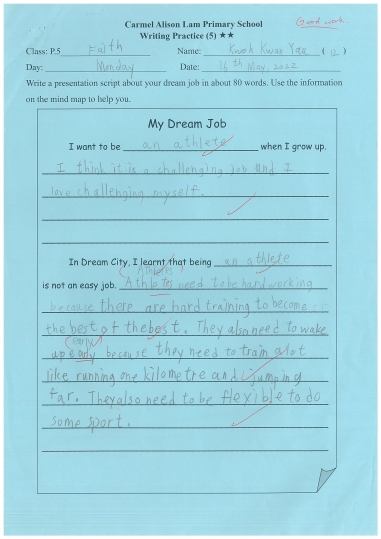 Carmel Alison Lam Primary School
Good work.
Writing Practice (5) ★★
Class: P.5 Faith Name: Kwok Kwan Yau (12)
Day: Monday Date: 16th May, 2022
Write a presentation script about your dream job in about 80 words. Use the information
on the mind map to help you.
My Dream Job
I want to be an athlete when I grow up.
I think it is a challenging job and I
love challenging myself.
In Dream City, I learnt that being an athlete
Athletes
is not an easy job. Athletes need to be hardworking
because there are hard training to become
the best of the best. They also need to wake
early
up early because they need to train a lot
like running one kilometre and jumping
far. They also need to be flexible to do
some sport.